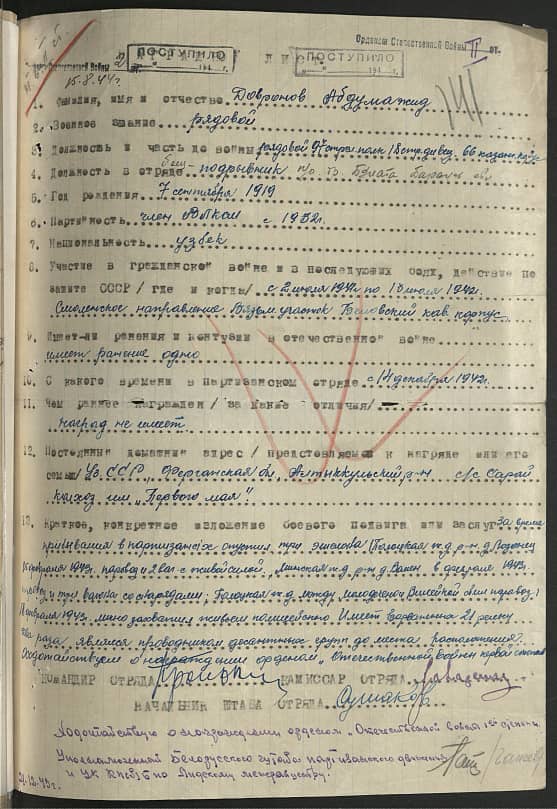 Орденом Отечественной Войны II ст.
ПОСТУПИЛО
ПОСТУПИЛО
15.8.44г.
1. Фамилия, имя и отчество Довронов Абдумажид
2. Военное звание рядовой
3. Должность и часть до войны рядовой
4. Должность в отряде подрывник
5. Год рождения 7 сентября 1919
6. Партийность член ВЛКСМ с 1932г.
7. Национальность узбек
8. Участие в гражданской войне и в последующих боях, действие по
защите СССР / где и когда/ с 2 июля 1941г по 10 июля 1942г.
Смоленское направление Вязьм. участок Беловский кав. корпус
9. Имеет-ли ранения и контузии в отечественной войне
имеет ранение одно
10. С какого времени в партизанском отряде с 14 декабря 1942г.
11. Чем раннее награжден / за какие отличия/
наград не имеет
12. Постоянный домашний адрес / представляемого к награде или его
семьи/ Уз ССР, Ферганская обл, Алтынкульский р-н с/с Сарай
колхоз им „Первого мая"
13. Краткое, конкретное изложение боевого подвига или заслуг За время
пребывания в партизанах спустил три эшелона (Полоцкая ж.д. р-н д.
февраля 1943г. паровоз и 2 ваг. с живой силой, Минская ж.д. р-н д. в феврале 1943г.
паровоз и три вагона со снарядами; Полоцкая ж.д. между Молодечно Вилейской обл паровоз)
февраля 1943г. лично захватил живьем полицейского Имеет
два раза являлся проводником десантных групп до места расположения.
Ходатайствуем о награждении орденом „Отечественной войны первой степени
КОМАНДИР ОТРЯДА КОМИССАР ОТРЯДА
НАЧАЛЬНИК ШТАБА ОТРЯДА
Ходатайствую о награждении орденом „Отечественной войны 1ой степени.
Уполномоченный Белорусского штаба партизанского движения
и ЦК КП(б)Б по Лидскому межрайцентру.
21.12.43г.